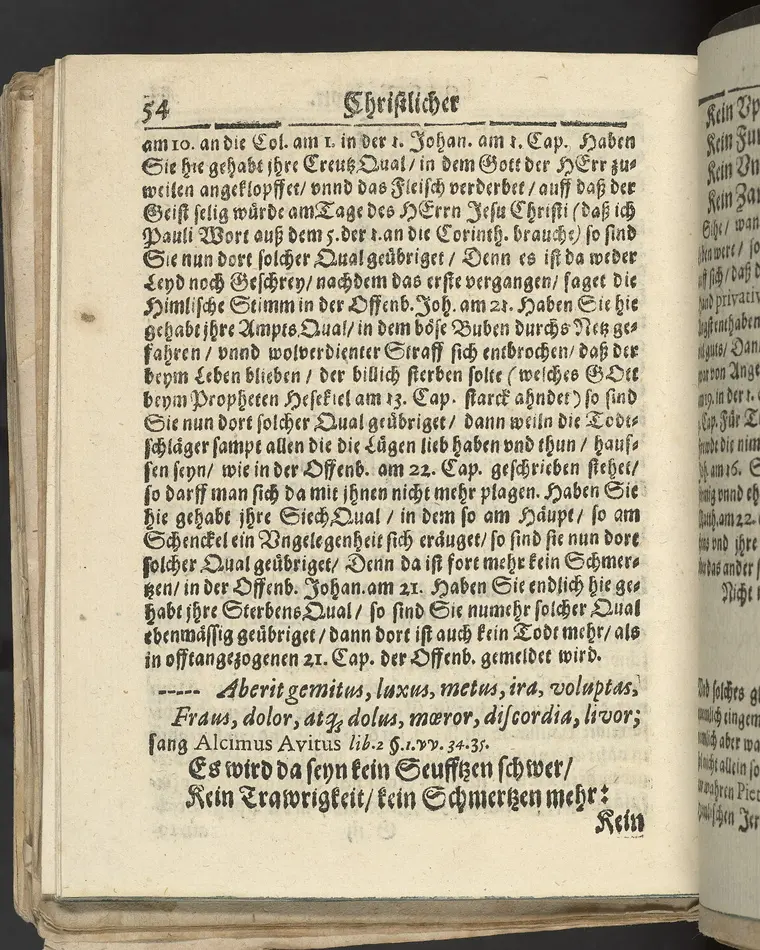 54 Christlicher
am 10. an die Col. am 1. in der 1. Johan. am 1. Cap. Haben
Sie hie gehabt jhre CreutzQual / in dem Gott der HErr zu-
weilen angeklopffet / vnnd das Fleisch verderbet / auff daß der
Geist selig würde am Tage des HErrn Jesu Christi (daß ich
Pauli Wort auß dem 5. der 1. an die Corinth. brauche) so sind
Sie nun dort solcher Qual geübriget / Denn es ist da weder
Leyd noch Geschrey / nachdem das erste vergangen / saget die
Himlische Stimm in der Offenb. Joh. am 21. Haben Sie hie
gehabt jhre AmptsQual / in dem böse Buben durchs Netz ge-
fahren / vnnd wolverdienter Straff sich entbrochen / daß der
beym Leben blieben / der billich sterben solte (welches GOtt
beym Propheten Hesekiel am 13. Cap. starck ahndet) so sind
Sie nun dort solcher Qual geübriget / dann weiln die Todt-
schläger sampt allen die die Lügen lieb haben vnd thun / haus-
sen seyn / wie in der Offenb. am 22. Cap. geschrieben stehet /
so darff man sich da mit jhnen nicht mehr plagen. Haben Sie
hie gehabt jhre SiechQual / in dem so am Häupt / so am
Schenckel ein Vngelegenheit sich eräuget / so sind sie nun dort
solcher Qual geübriget / Denn da ist fort mehr kein Schmer-
tzen / in der Offenb. Johan. am 21. Haben Sie endlich hie ge-
habt jhre SterbensQual / so sind Sie numehr solcher Qual
ebenmässig geübriget / dann dort ist auch kein Todt mehr / als
in offtangezogenen 21. Cap. der Offenb. gemeldet wird.
----- Aberit gemitus, luxus, metus, ira, voluptas,
Fraus, dolor, atq; dolus, mœror, discordia, livor;
sang Alcimus Avitus lib. 2 §. 1. vv. 34. 35.
Es wird da seyn kein Seufftzen schwer /
Kein Trawrigkeit / kein Schmertzen mehr:
Kein